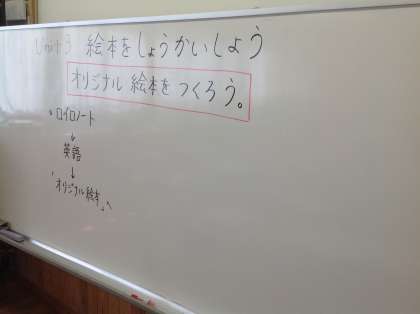 Unit 3 絵本をしょうかいしよう
オリジナル絵本をつくろう。
・ロイロノート
↓
英語
↓
「オリジナル絵本」へ